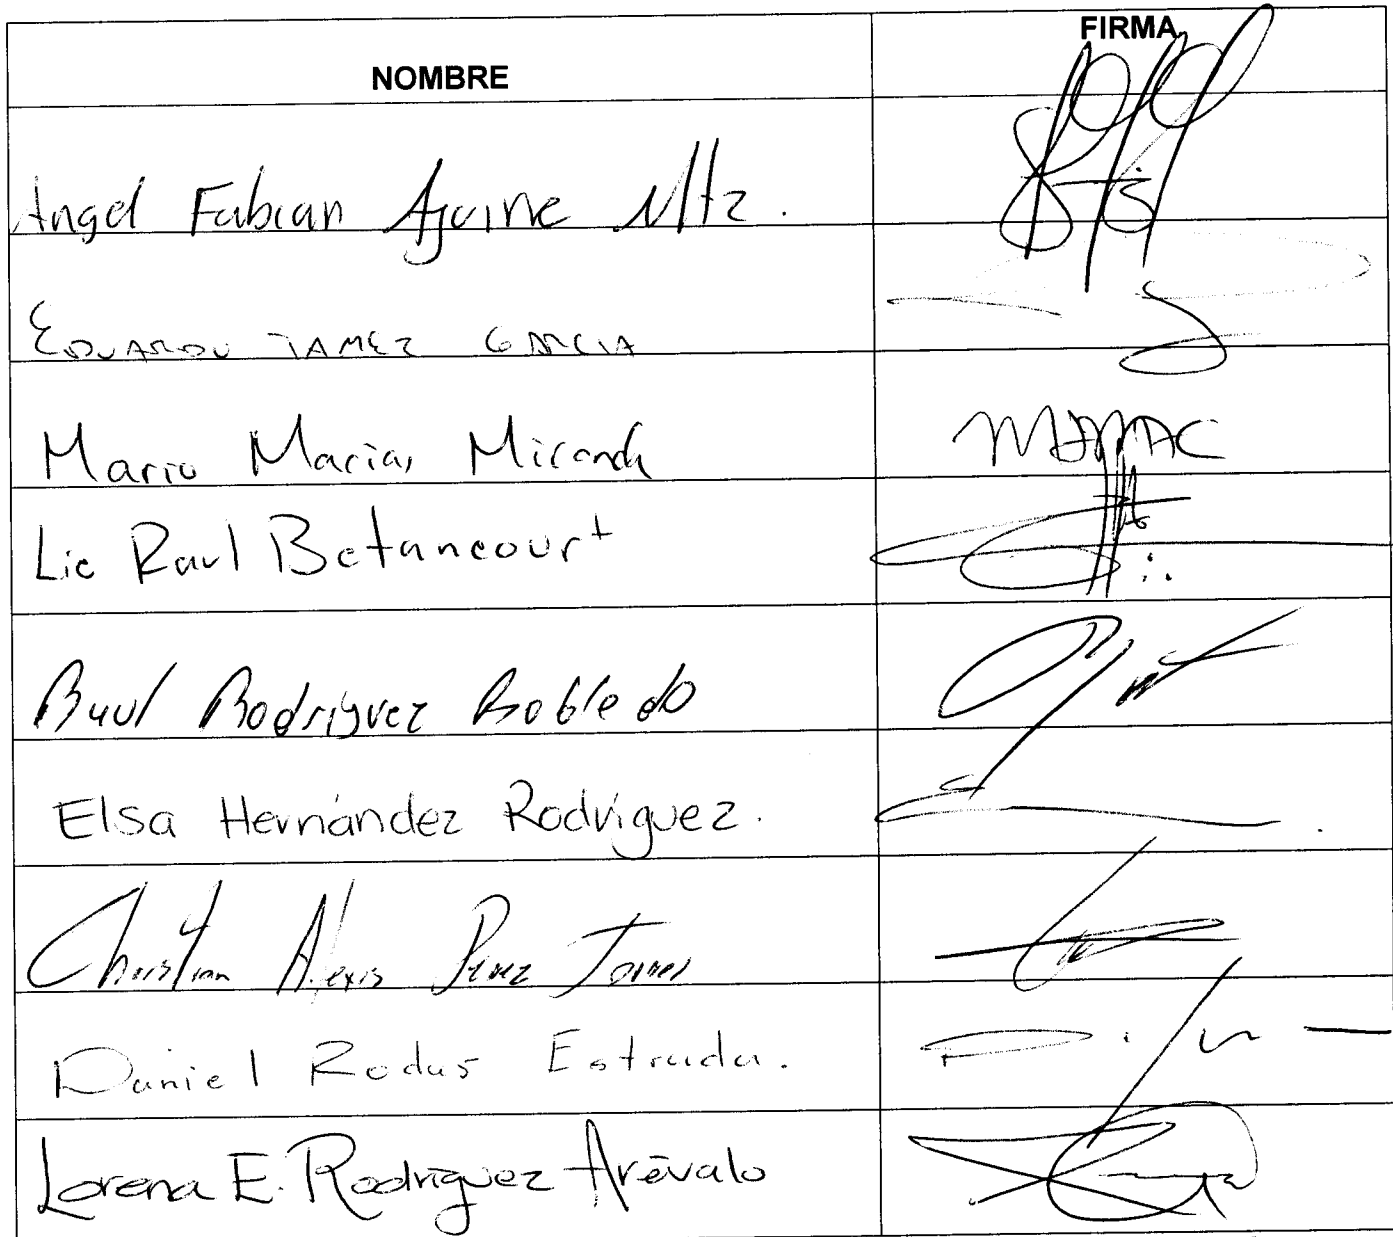 NOMBRE FIRMA
Angel Fabian Aguirre Mtz.
EDUARDO TAMEZ GARCIA
Mario Macias Miranda
Lic Raul Betancourt
Raul Rodriguez Robledo
Elsa Hernández Rodríguez.
Christian Alexis Perez Torres
Daniel Rodas Estrada.
Lorena E. Rodríguez Arévalo